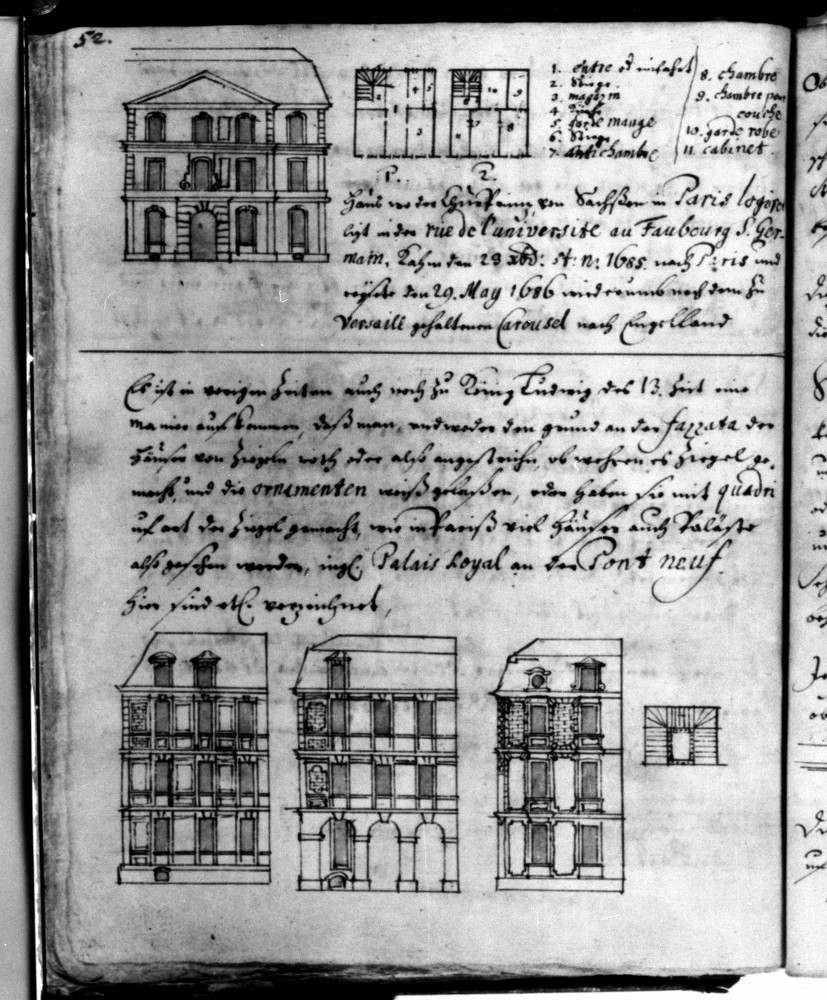 52.
1. entre od einfahrt
2. Stiege
3. magazin
4.
5. garde mange
6. Stiege
7. antichambre
8. chambre
9. chambre pour
couche
10. garde robe
11. cabinet.
1. 2.
Hauß wo der Chur Prinz von Sachßen in Paris logiret
ligt in der rue de l'université au Faubourg S. Ger-
main, kahm den 23 xbr: st: n: 1685. nach Paris und
reysete den 29. May 1686 wiederumb nach dem zu
Versaill gehaltenen Carousel nach Engelland
Es ist in vorigen Zeiten auch noch zu König Ludwig des 13. Zeit eine
manier aufkommen, daß man, endweder den grund an der fazzata der
Häuser von Ziegeln roth oder also angestrichen, ob wehren es Ziegel ge-
macht, und die ornamenten weiß gelaßen, oder haben sie mit quadri
uf art der Ziegel gemacht, wie in Pariß viel Häuser auch Paläste
also gesehen werden, ingl. Palais Royal an der Pont neuf
hier sind etl. verzeichnet,